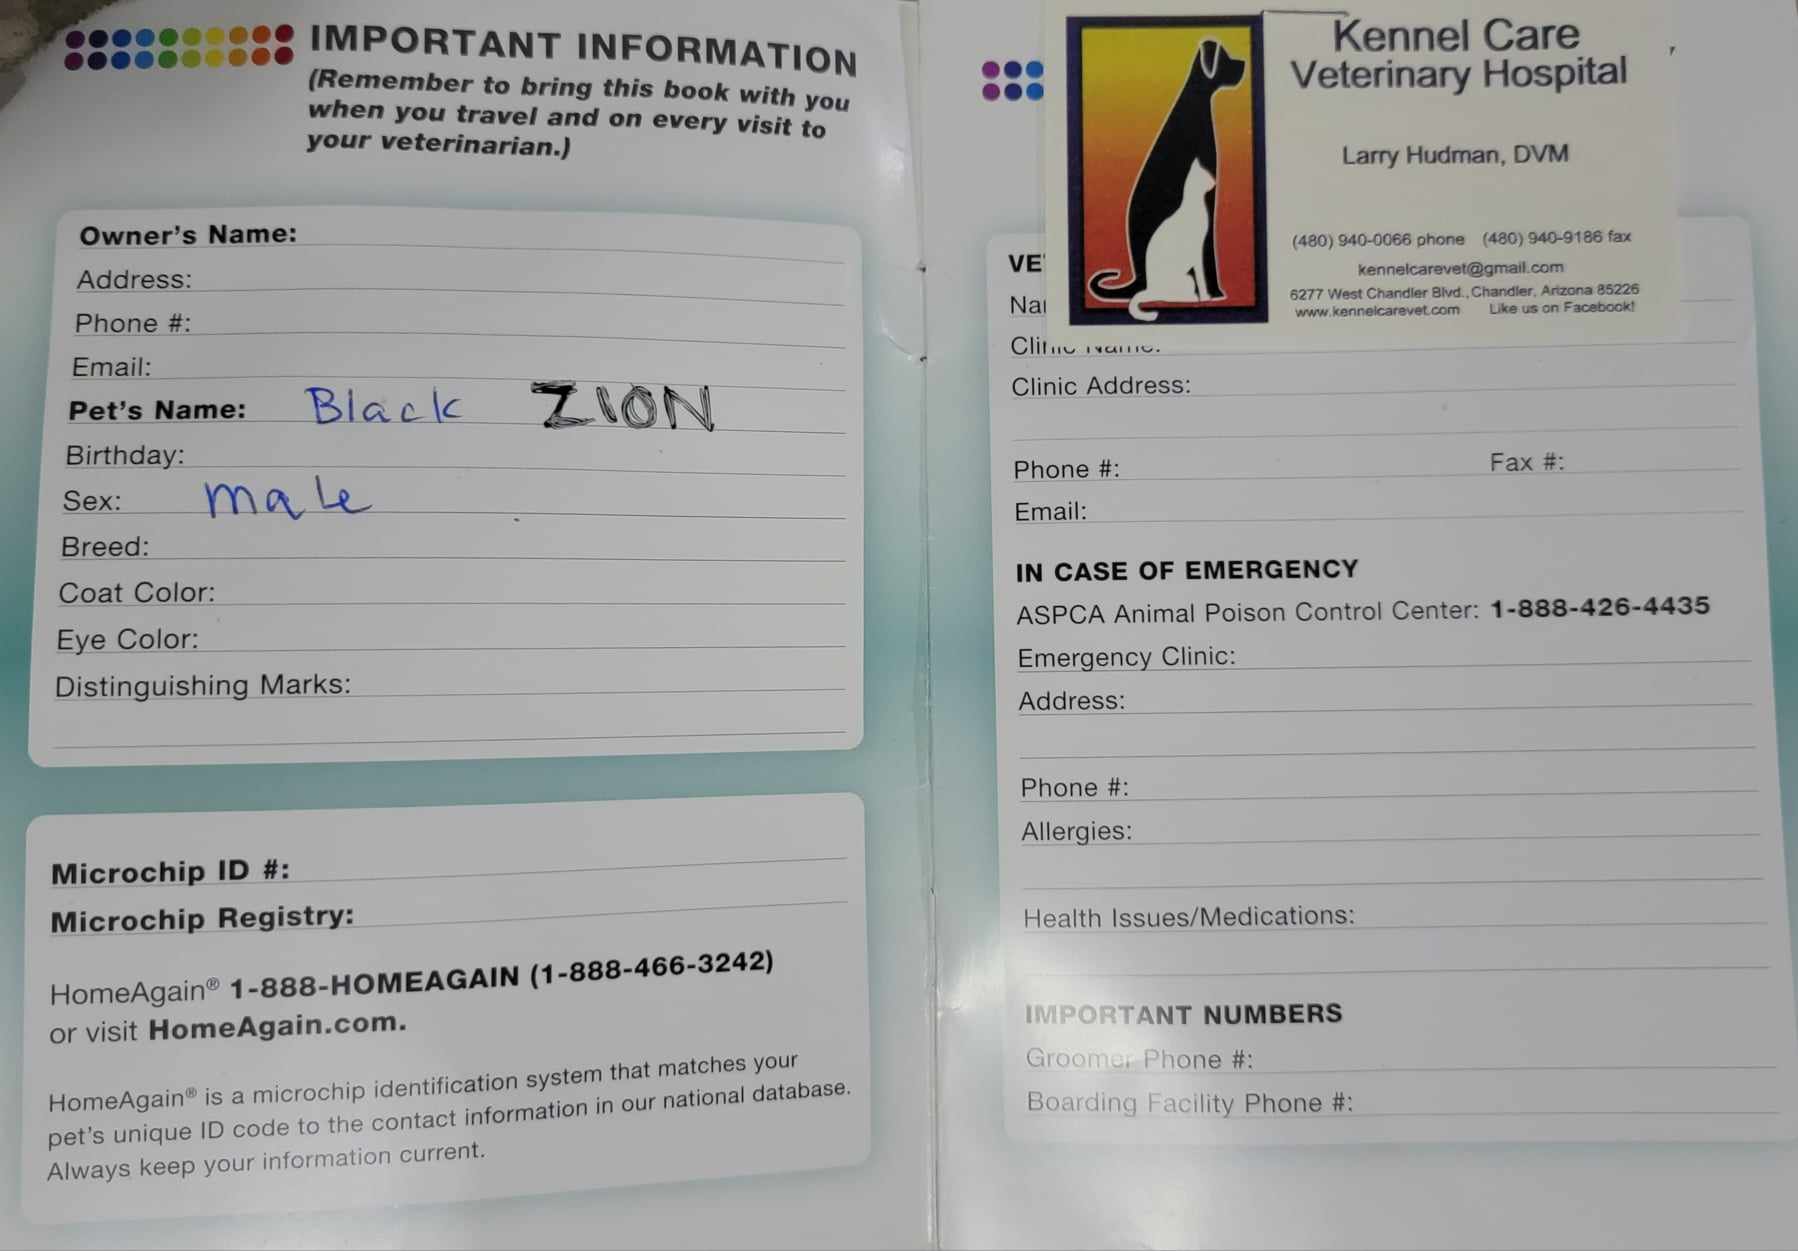 IMPORTANT INFORMATION
(Remember to bring this book with you
when you travel and on every visit to
your veterinarian.)
Owner's Name:
Address:
Phone #:
Email:
Pet's Name: Black ZION
Birthday:
Sex: male
Breed:
Coat Color:
Eye Color:
Distinguishing Marks:
Microchip ID #:
Microchip Registry:
HomeAgain® 1-888-HOMEAGAIN (1-888-466-3242)
or visit HomeAgain.com.
HomeAgain® is a microchip identification system that matches your
pet's unique ID code to the contact information in our national database.
Always keep your information current.
Kennel Care
Veterinary Hospital
Larry Hudman, DVM
(480) 940-0066 phone (480) 940-9186 fax
kennelcarevet@gmail.com
6277 West Chandler Blvd., Chandler, Arizona 85226
www.kennelcarevet.com Like us on Facebook!
Clinic Name:
Clinic Address:
Phone #: Fax #:
Email:
IN CASE OF EMERGENCY
ASPCA Animal Poison Control Center: 1-888-426-4435
Emergency Clinic:
Address:
Phone #:
Allergies:
Health Issues/Medications:
IMPORTANT NUMBERS
Groomer Phone #:
Boarding Facility Phone #: